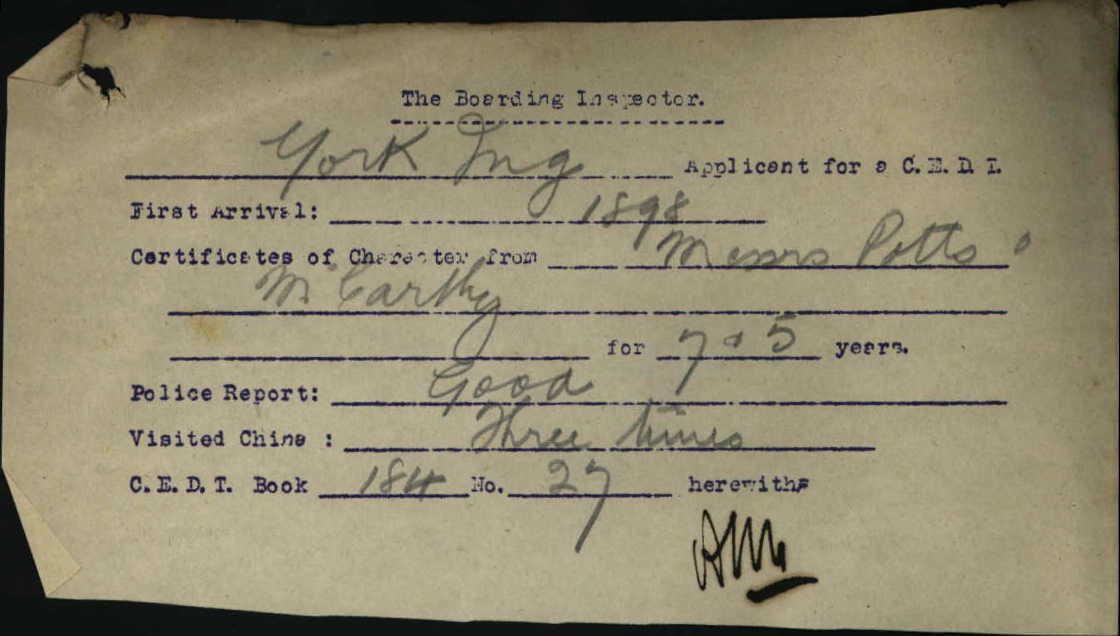 The Boarding Inspector.
York Ing Applicant for a C.E.D.T.
First Arrival: 1898
Certificates of Character from Messrs Potts &
McCarthy
for 7 & 5 years.
Police Report: Good
Visited China : Three times
C.E.D.T. Book 184 No. 27 herewith